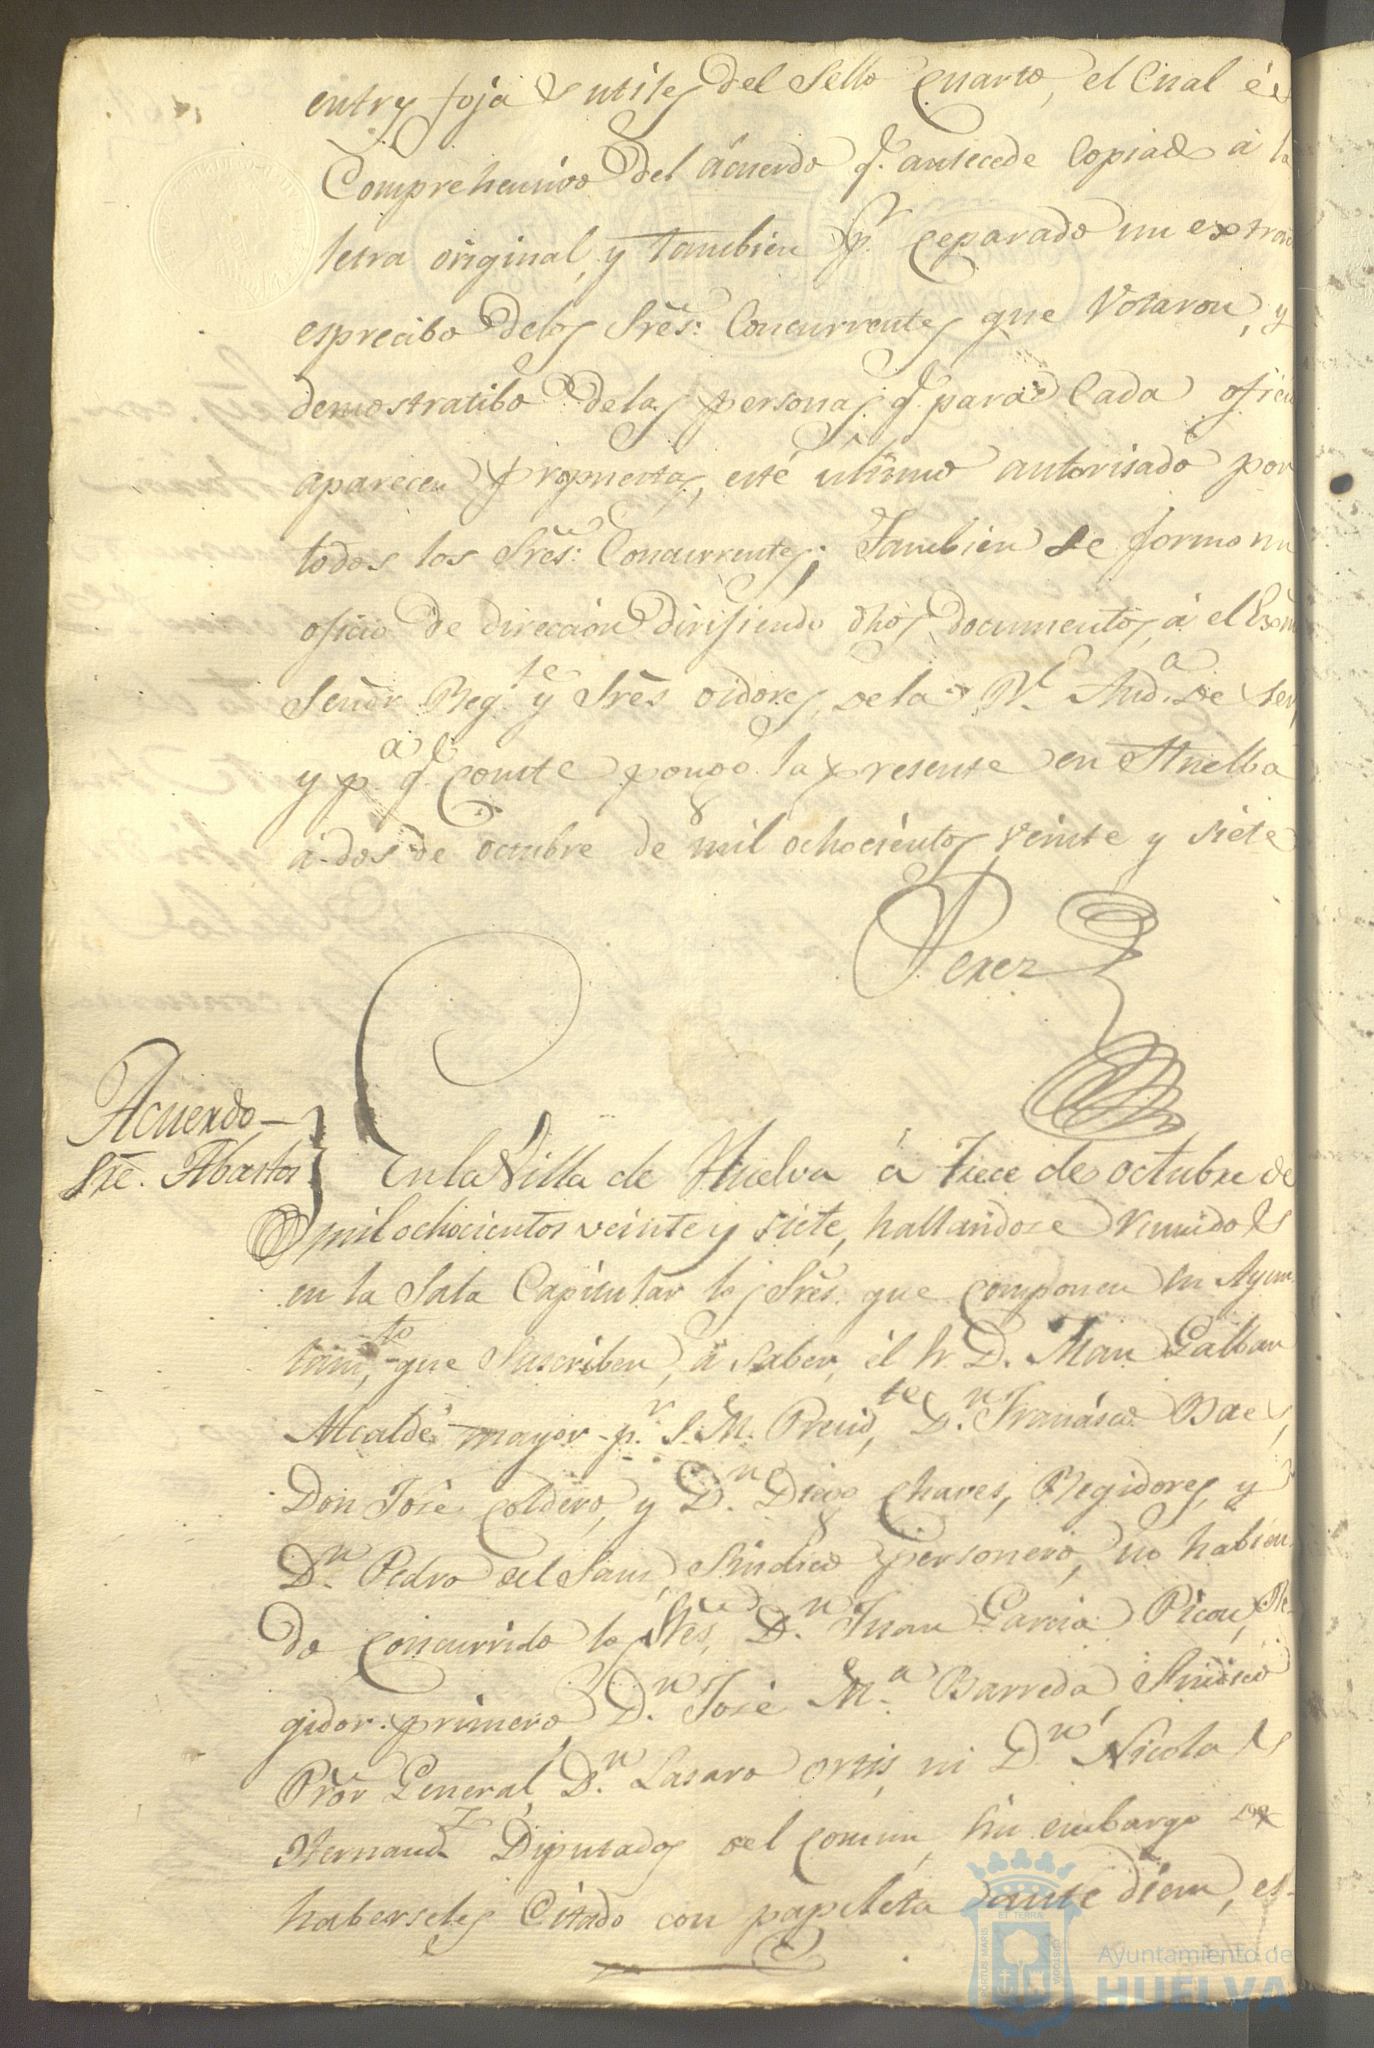 entres fojas utiles del Sello Quarto, el Cual és
Comprehensivo del ácuerdo q.e antecede Copiado á la
letra original, y tambien p.r ceparado un extrac
esprecibo delos Sres. Concurrentes que Votaron, y
demostratibo delas personas q.e para Cada oficio
aparecen propuestas, esté ultimo autorisado por
todos los Sres. Concurrentes; Tambien se formo un
oficio de direccion dirijiendo dhos documentos, á el Exmo
Señor Reg.te y Sres oidores de la R.l Aud.a de Sev
y p.a q.e conste pongo la presente en Huelba
á dos de Octubre de mil ochocientos veinte y siete
Perez
Acuerdo
Sre. Abastos
En la Villa de Huelva á trece de octubre de
mil ochocientos veinte y siete, hallandose reunidos
en la Sala Capitular los Sres. que componen su Ayun
tam.to, que Suscriben, á saber, él Sr. D. Juan Galban
Alcalde mayor p.r S. M. Presid.te, D.n Francisco Baes,
Don José Coldero, y D.n Diego Chaves, Regidores, y
D.n Pedro del Sans, Sindico personero, no habien
do concurrido los Sres, D.n Juan Garcia Picon, Re-
gidor primero, D.n José M.a Barreda, Sindico
Pror General, D.n Lasaro Ortis, ni D.n Nicolas
Hernand.z Diputados del comun, sin embargo de
haberseles Citado con papeleta ante diem, es-
PORTUS MARIS
ET TERRÆ
CUSTODIA
Ayuntamiento de
HUELVA